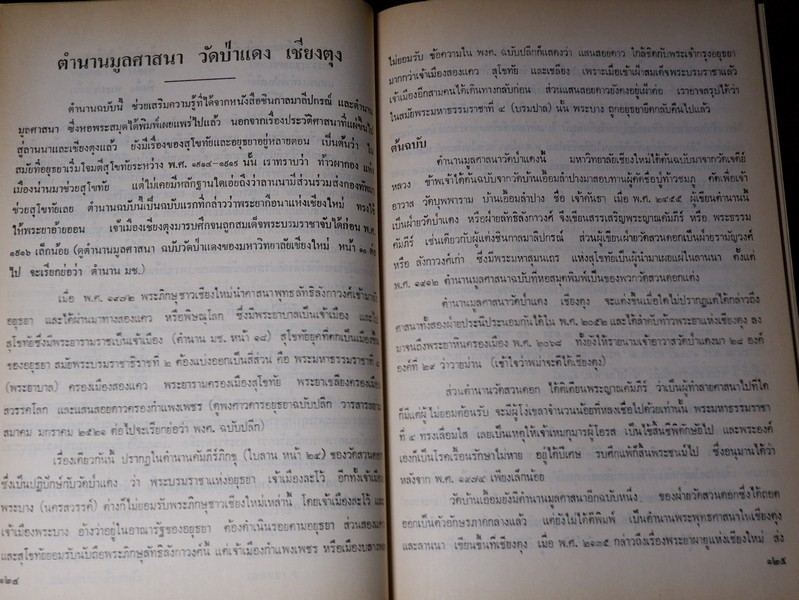 ตำนานมูลศาสนา วัดป่าแดง เชียงตุง
ตำนานฉบับนี้ ช่วยเสริมความรู้ที่ได้จากหนังสือชินกาลมาลีปกรณ์ และตำนาน
มูลศาสนา ซึ่งหอพระสมุดได้พิมพ์เผยแพร่ไปแล้ว นอกจากเรื่องประวัติศาสนาที่แผ่ขึ้นไป
สู่ลานนาและเชียงตุงแล้ว ยังมีเรื่องของสุโขทัยและอยุธยาอยู่หลายตอน เป็นต้นว่า ใน
สมัยที่อยุธยาเริ่มโจมตีสุโขทัยระหว่าง พ.ศ. ๑๙๑๔-๑๙๑๙ นั้น เราทราบว่า ท้าวผากอง แห่ง
เมืองน่านมาช่วยสุโขทัย แต่ไม่เคยมีหลักฐานใดเอ่ยถึงว่าลานนามีส่วนร่วมส่งกองทัพมา
ช่วยสุโขทัยเลย ตำนานฉบับนี้เป็นฉบับแรกที่กล่าวว่าพระยากือนาแห่งเชียงใหม่ ทรงใช้
ให้พระยาอ้ายออน เจ้าเมืองเชียงตุงมารบศึกจนถูกสมเด็จพระบรมราชาจับได้ก่อน พ.ศ.
๑๙๑๖ เล็กน้อย (ดูตำนานมูลศาสนา ฉบับวัดป่าแดงของมหาวิทยาลัยเชียงใหม่ หน้า ๑๐ ต่อ
ไป จะเรียกย่อว่า ตำนาน มช.)
เมื่อ พ.ศ. ๑๙๗๒ พระภิกษุชาวเชียงใหม่นำศาสนาพุทธลัทธิลังกาวงศ์เข้ามาถึง
อยุธยา และได้ผ่านมาทางสองแคว หรือพิษณุโลก ซึ่งมีพระยาบาลเป็นเจ้าเมือง และไป
สุโขทัยซึ่งมีพระยารามราชเป็นเจ้าเมือง (ตำนาน มช. หน้า ๑๘) สุโขทัยยุคที่ตกเป็นเมืองขึ้น
ของอยุธยา สมัยพระบรมราชาธิราชที่ ๒ ต้องแบ่งออกเป็นสี่ส่วน คือ พระมหาธรรมราชาที่ ๔
(พระยาบาล) ครองเมืองสองแคว พระยารามครองเมืองสุโขทัย พระยาเชลียงครองเมือง
สวรรคโลก และแสนสอยดาวครองกำแพงเพชร (ดูพงศาวดารอยุธยาฉบับปลีก วารสารสยาม
สมาคม มกราคม ๒๕๒๑ ต่อไปจะเรียกย่อว่า พงศ. ฉบับปลีก)
เรื่องเดียวกันนี้ ปรากฏในตำนานคัมภีร์ภิกขุ (ใบลาน หน้า ๒๔) ของวัดสวนดอก
ซึ่งเป็นปฏิปักษ์กับวัดป่าแดง ว่า พระบรมราชาแห่งอยุธยา เจ้าเมืองละโว้ อีกทั้งเจ้าเมือง
พระบาง (นครสวรรค์) ต่างก็ไม่ยอมรับพระภิกษุชาวเชียงใหม่เหล่านี้ โดยเจ้าเมืองละโว้ และ
เจ้าเมืองพระบาง อ้างว่าอยู่ในอาณารัฐของอยุธยา ต้องดำเนินรอยตามอยุธยา ส่วนสองแคว
และสุโขทัยยอมรับนับถือพระภิกษุลัทธิลังกาวงศ์นี้ แต่เจ้าเมืองกำแพงเพชร หรือเมืองบางพาน
๑๒๔
ไม่ยอมรับ ข้อความใน พงศ. ฉบับปลีกก็แสดงว่า แสนสอยดาว ใกล้ชิดกับพระเจ้ากรุงอยุธยา
มากกว่าเจ้าเมืองสองแคว สุโขทัย และเชลียง เพราะเมื่อเข้าเฝ้าสมเด็จพระบรมราชาแล้ว
เจ้าเมืองอีกสามคนได้เดินทางกลับก่อน ส่วนแสนสอยดาวยังคงอยู่เฝ้าต่อ เราอาจสรุปได้ว่า
ในสมัยพระมหาธรรมราชาที่ ๔ (บรมปาล) นั้น พระบาง ถูกอยุธยายึดกลับคืนไปแล้ว
ต้นฉบับ
ตำนานมูลศาสนาวัดป่าแดงนี้ มหาวิทยาลัยเชียงใหม่ได้ต้นฉบับมาจากวัดเจดีย์
หลวง ข้าพเจ้าได้ต้นฉบับจากวัดบ้านเอื้อมลำปางมาสอบทานผู้คัดชื่อปู่ท้าวชมภู คัดเพื่อเจ้า
อาวาส วัดบุพพาราม บ้านเอื้อมลำปาง ชื่อ เจ้าคันธา เมื่อ พ.ศ. ๒๔๕๕ ผู้เขียนตำนานนี้
เป็นฝ่ายวัดป่าแดง หรือฝ่ายลัทธิลังกาวงศ์ จึงเขียนสรรเสริญพระญาณคัมภีร์ หรือ พระธรรม
คัมภีร์ เช่นเดียวกับผู้แต่งชินกาลมาลีปกรณ์ ส่วนผู้เขียนฝ่ายวัดสวนดอกเป็นฝ่ายรามัญวงศ์
หรือ ลังกาวงศ์เก่า ซึ่งมีพระมหาสุมนเถร แห่งสุโขทัยเป็นผู้นำมาเผยแผ่ในลานนา ตั้งแต่
พ.ศ. ๑๙๑๒ ตำนานมูลศาสนาฉบับที่หอสมุดพิมพ์เป็นของพวกวัดสวนดอกแต่ง
ตำนานมูลศาสนาวัดป่าแดง เชียงตุง จะแต่งขึ้นเมื่อใดไม่ปรากฏแต่ได้กล่าวถึง
ศาสนาทั้งสองฝ่ายประนีประนอมกันได้ใน พ.ศ. ๒๐๕๒ และได้ลำดับท้าวพระยาแห่งเชียงตุง ลง
มาจนถึงพระยาหินครองเมือง พ.ศ. ๒๐๖๘ ทั้งยังให้รายนามเจ้าอาวาสวัดป่าแดงมา ๒๘ องค์
องค์ที่ ๒๙ ว่าวายม่าน (เข้าใจว่าพม่าจะตีได้เชียงตุง)
ส่วนตำนานวัดสวนดอก ได้ติเตียนพระญาณคัมภีร์ ว่าเป็นผู้ทำลายศาสนาไปที่ใด
ก็มีแต่ผู้ไม่ยอมต้อนรับ จะมีผู้โง่เขลาจำนวนน้อยที่หลงเชื่อไปด้วยเท่านั้น พระมหาธรรมราชา
ที่ ๔ ทรงเลื่อมใส เลยเป็นเหตุให้เจ้าเหมกุมารผู้โอรส เป็นไข้สิ้นชีพิตักษัยไป และพระองค์
เองก็เป็นโรคเรื้อนรักษาไม่หาย อยู่ได้ปีเศษ รบศึกแพ้ก็สิ้นพระชนม์ไป ซึ่งอนุมานได้ว่า
หลังจาก พ.ศ. ๑๙๗๔ เพียงเล็กน้อย
วัดบ้านเอื้อมยังมีตำนานมูลศาสนาอีกฉบับหนึ่ง ของฝ่ายวัดสวนดอกซึ่งได้ถอด
ออกเป็นตัวอักษรภาคกลางแล้ว แต่ยังไม่ได้ตีพิมพ์ เป็นตำนานพระพุทธศาสนาในเชียงตุง
และลานนา เขียนขึ้นที่เชียงตุง เมื่อ พ.ศ. ๒๑๓๕ กล่าวถึงเรื่องพระยาผายูแห่งเชียงใหม่ ส่ง
๑๒๕